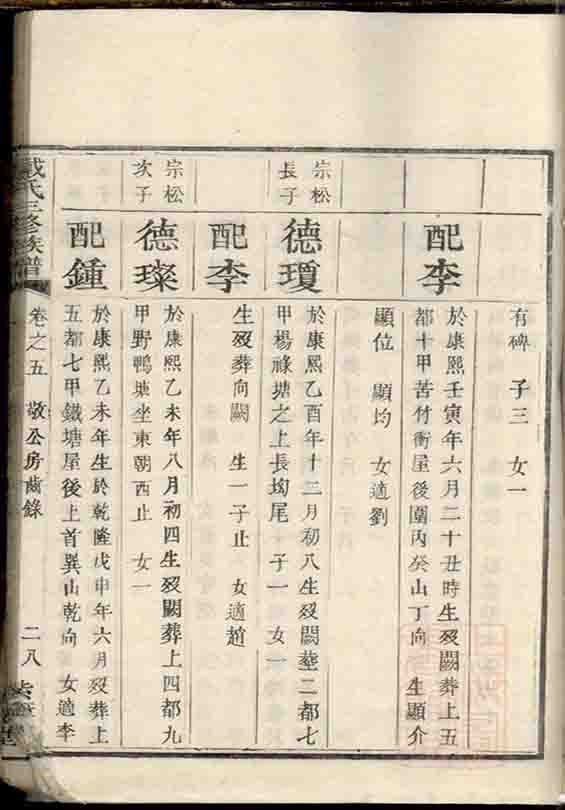 有碑　子三　女一
配李
於康熙壬寅年六月二十丑時生歿闕葬上五
都十甲苦竹衝屋後圍丙癸山丁向　生顯介
顯位　顯均　女適劉
宗松
長子
德瓊
於康熙乙酉年十二月初八生歿闕塟二都七
甲楊祿塘之上長坳尾　子一　女一
配李
生歿葬向闕　生一子止　女適趙
宗松
次子
德璨
於康熙乙未年八月初四生歿闕葬上四都九
甲野鴨塘坐東朝西止　女一
配鍾
於康熙乙未年生於乾隆戊申年六月歿葬上
五都七甲鐵塘屋後上首巽山乾向　女適李
戴氏三修族譜
卷之五　敬公房齒錄
二八